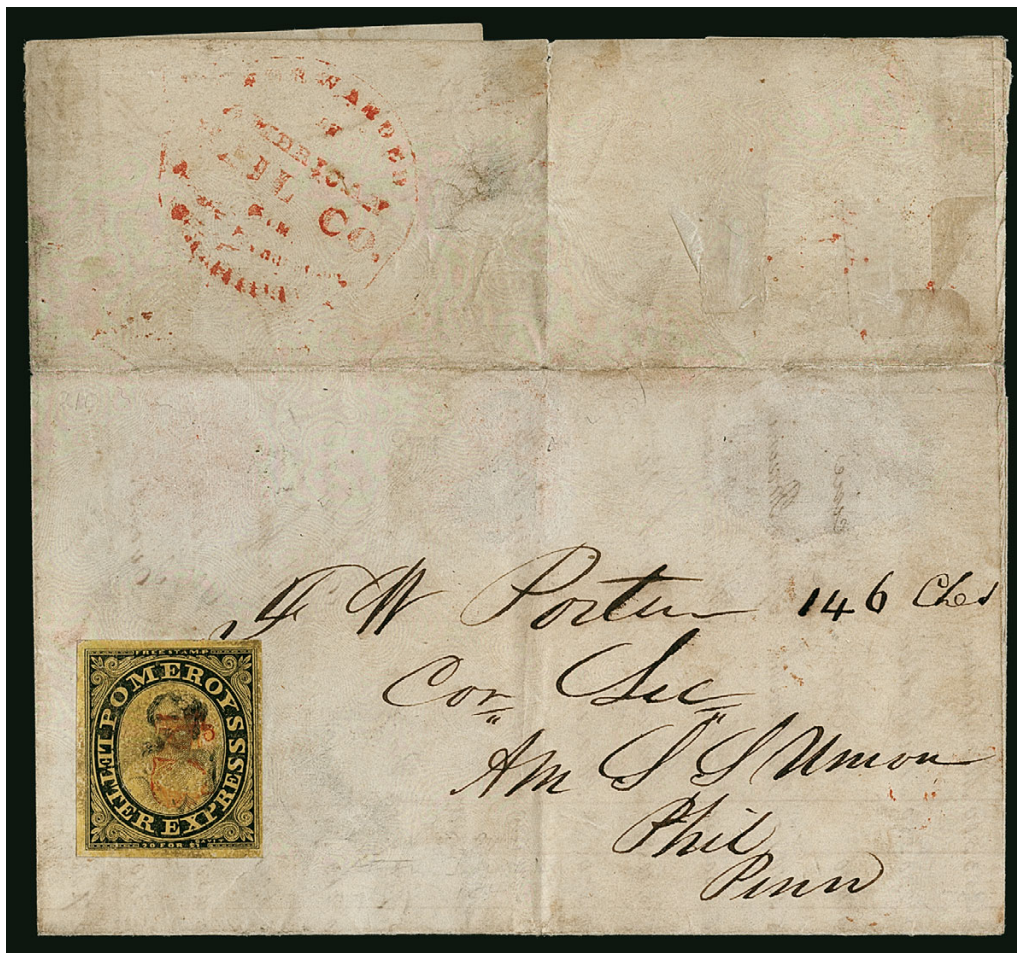 FORWARDED
BY
AMERICAN
MAIL CO.
F W Porter 146 Ches
Cor" Sec"
Am S S Union
Phil
Penn
FREE STAMP
POMEROY'S
LETTER EXPRESS
20 FOR $1